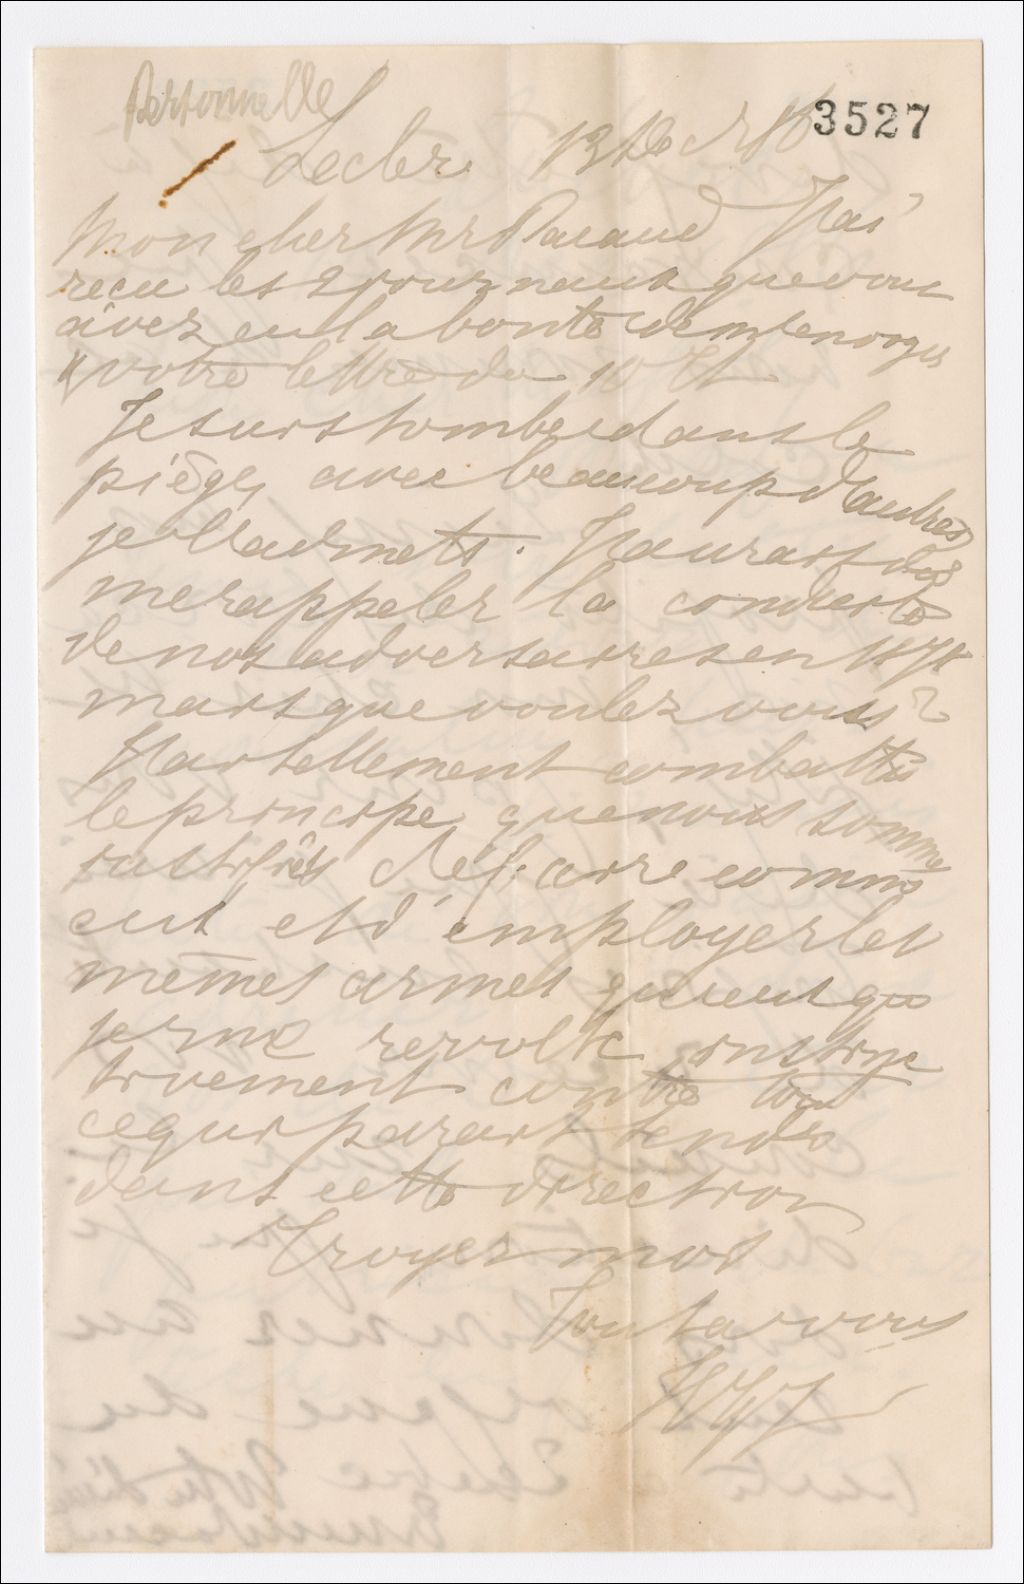 Personnelle
3527
Lecler 13 Dec
Mon cher Mr Pacaud J'ai
reçu les 2 journaux que vous
avez eu la bonté de m'envoyer
& votre lettre du 10 Ct
Je suis tombé dans le
piège, avec beaucoup d'autres
je l'admets. J'aurais dû
me rappeler la conduite
de nos adversaires en 1878
mais que voulez vous?
J'ai tellement combattu
le principe que nous sommes
justifiés de faire comme
eux et d'employer les
mêmes armes qu'eux que
je me revolte instinc
tivement contre tout
ce qui parait tendre
dans cette direction
Croyez moi
Tout à vous